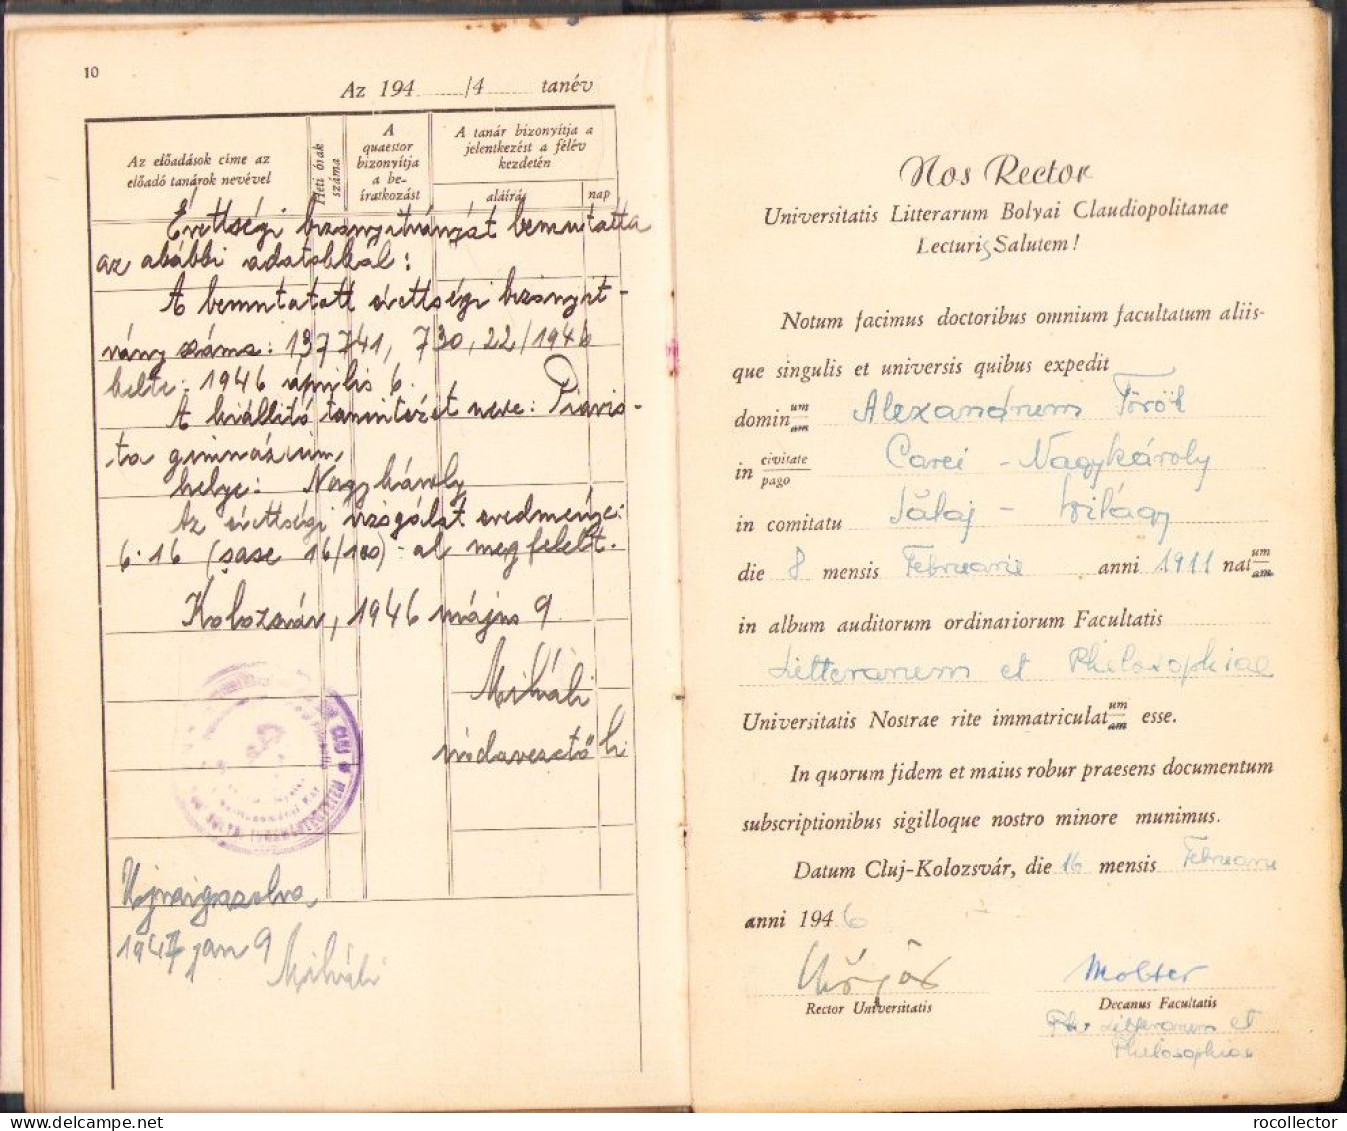 10
Az 194 /4 tanév
Az előadások címe az
előadó tanárok nevével
Heti órák
száma
A
quaestor
bizonyítja
a be-
íratkozást
A tanár bizonyítja a
jelentkezést a félév
kezdetén
aláírás
nap
Érettségi bizonyítványát bemutatta
az alábbi adatokkal:
A bemutatott érettségi bizonyít-
vány száma: 137741, 730, 22/1946
kelte: 1946 április 6.
A kiállító tanintézet neve: Piaris-
ta gimnázium,
helye: Nagykároly
Az érettségi vizsgálat eredménye:
6.16 (șase 16/100) - al megfelelt.
Kolozsvár, 1946 május 9
Miháli
irodavezető h.
CLUJ
Ujraigazolva,
1947 jan 9 Miháli
Nos Rector
Universitatis Litterarum Bolyai Claudiopolitanae
Lecturis Salutem!
Notum facimus doctoribus omnium facultatum aliis-
que singulis et universis quibus expedit
domin um/am Alexandrum Török
in civitate/pago Carei - Nagykároly
in comitatu Sălaj - Szilágy
die 8 mensis Februarii anni 1911 nat um/am
in album auditorum ordinariorum Facultatis
Litterarum et Philosophiae
Universitatis Nostrae rite immatriculat um/am esse.
In quorum fidem et maius robur praesens documentum
subscriptionibus sigilloque nostro minore munimus.
Datum Cluj-Kolozsvár, die 16 mensis Februarii
anni 1946
Rector Universitatis
Molter
Decanus Facultatis
Ph. Litterarum et
Philosophiae
delcampe.net
rocollector